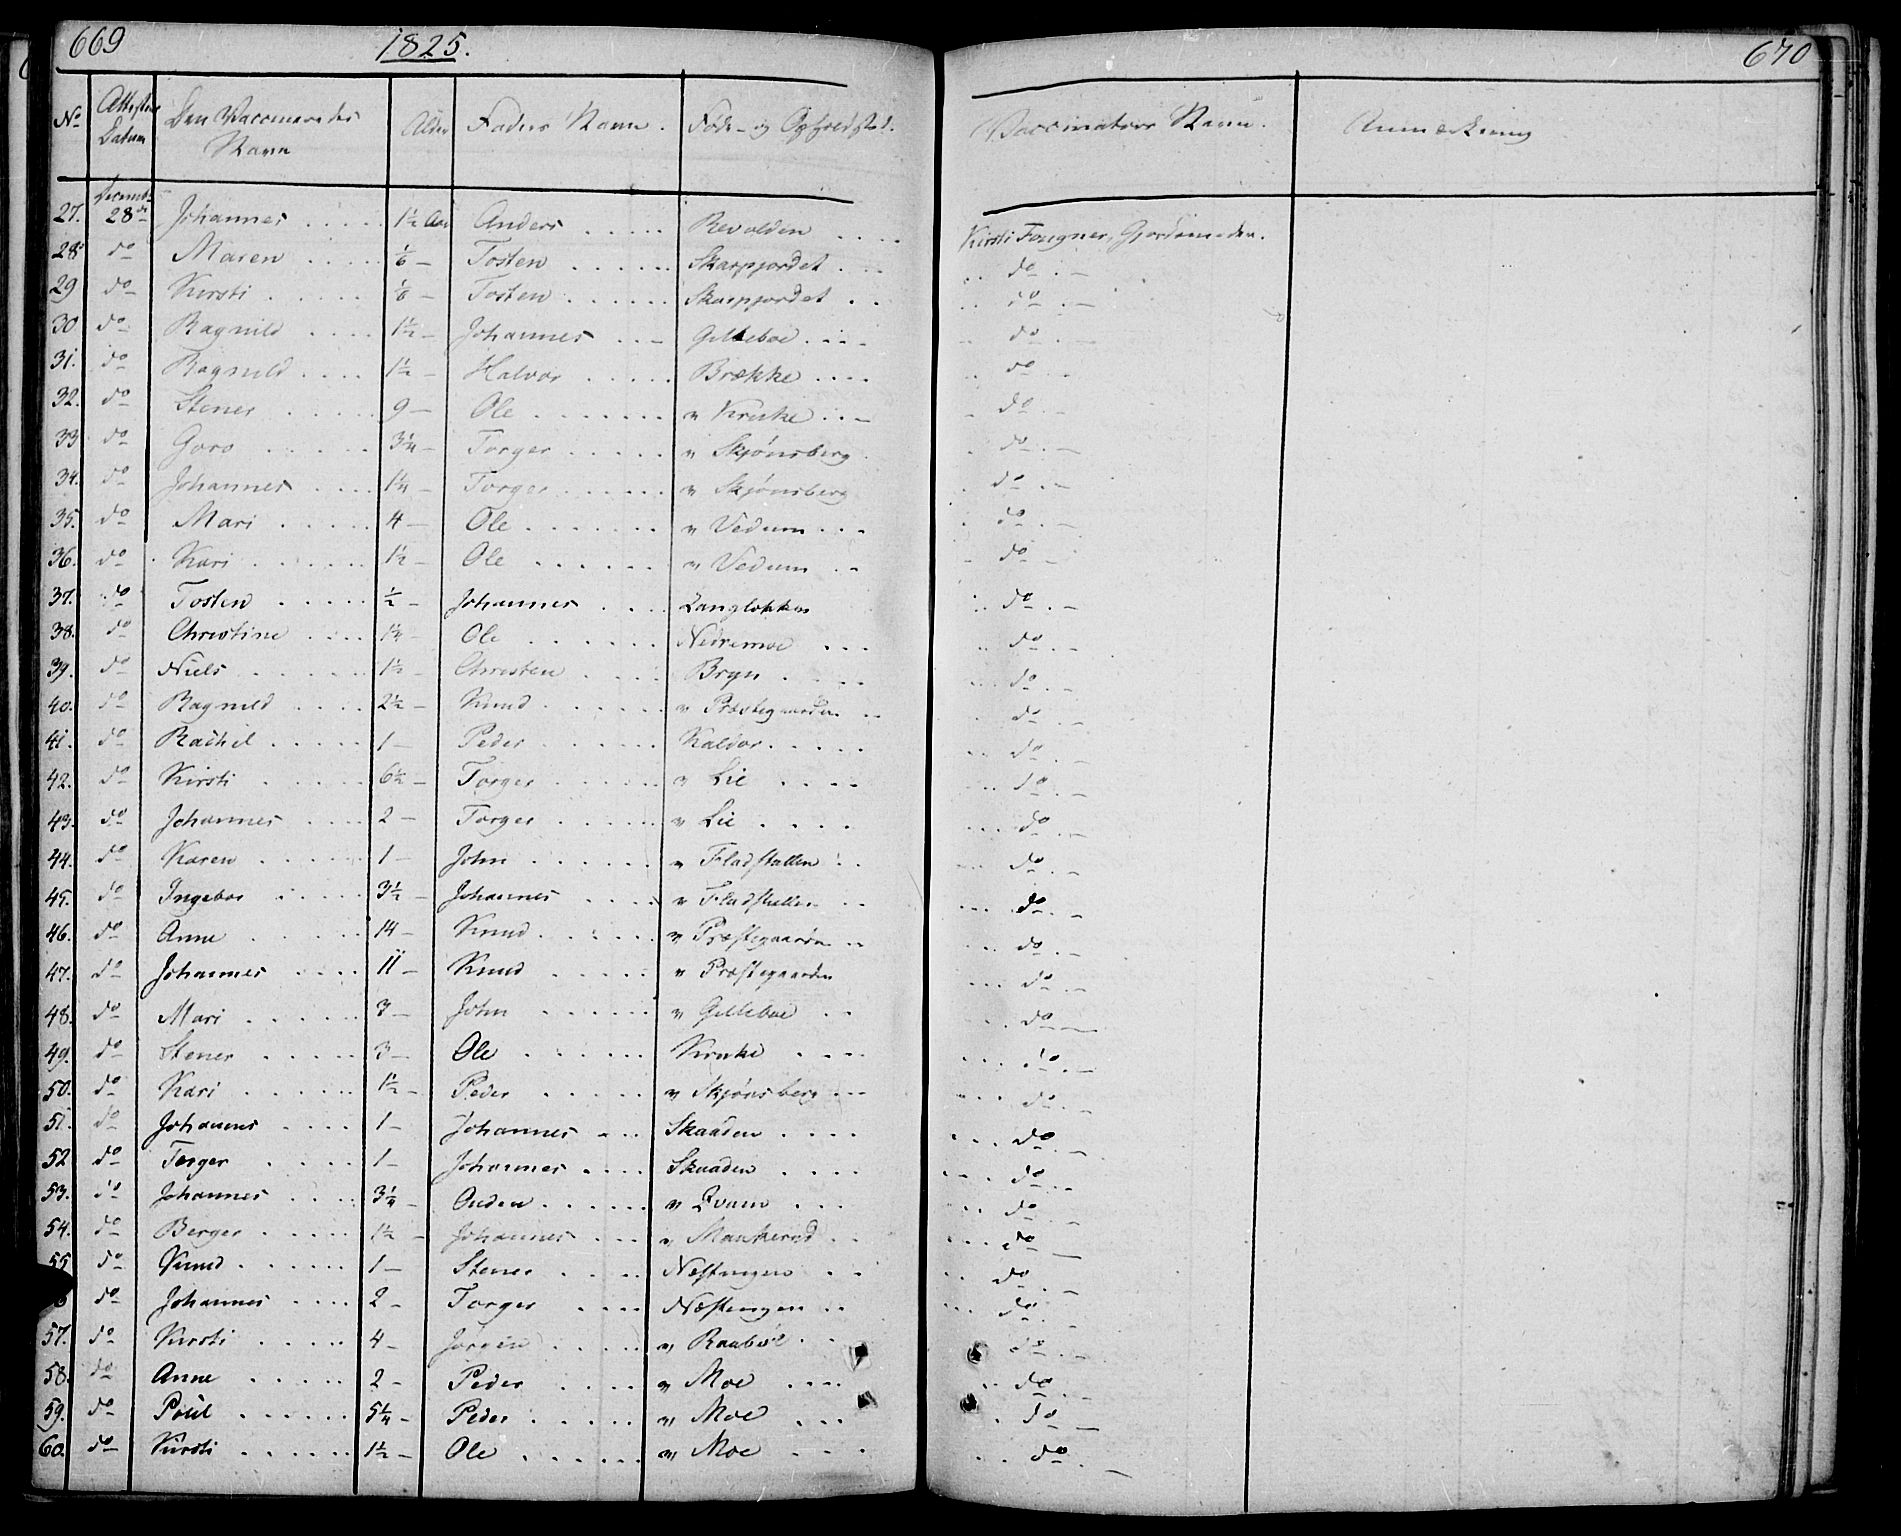 669 1825. 670
No Attestens Datum Den Vaccineredes Navn Alder Faders Navn. Føde- og Opholdsted. Vaccinators Navn. Anmærkning
27. Decemb. 28de Johannes 1½ Aar Anders Revolden Kirsti Fougner, Gjordemoder.
28 do Maren 1/6 — Tosten Skarpjordet do
29 do Kirsti 1/6 — Tosten Skarpjordet do
30 do Ragnild 1½ — Johannes Gilleboe do
31. do Ragnild 1½ — Halvor Brække do
32. do Stener 9 — Ole " Kruke do
33 do Goro 3¼ — Torger " Skjønsberg do
34. do Johannes 1¼ — Torger " Skjønsberg do
35. do Mari 4 — Ole " Vedum do
36. do Kari 1½ — Ole " Vedum do
37. do Tosten ½ — Johannes Langløkken do
38. do Christine 1¼ — Ole Nedremoe do
39. do Niels 1½ — Christen Bryn do
40. do Ragnild 2½ — Knud " Præstegaarden do
41. do Rachel 1 — Peder Kaldor do
42. do Kirsti 6½ — Torger " Lie do
43. do Johannes 2 — Torger " Lie do
44. do Karen 1 — John " Fladstallen do
45. do Ingebor 3½ — Johannes " Fladstallen do
46. do Anne 14 — Knud " Præstegaarden do
47. do Johannes 11 — Knud " Præstegaarden do
48. do Mari 3 — John " Gilleboe do
49. do Stener 3 — Ole Kruke do
50. do Kari 1½ — Peder " Skjønsberg do
51. do Johannes 1 — Johannes Skaaden do
52 do Torger 1 — Johannes Skaaden do
53. do Johannes 3¼ — Ouden " Qvam do
54. do Berger 1½ — Johannes " Maukerud do
55 do Knud 1 — Stener Næstengen do
6 do Johannes 2 — Torger Næstengen do
57. do Kirsti 4 — Jørgen " Raabøl do
58. do Anne 2 — Peder " Moe do
59. do Poul 5¼ — Peder " Moe do
60. do Kirsti 1½ — Ole " Moe do